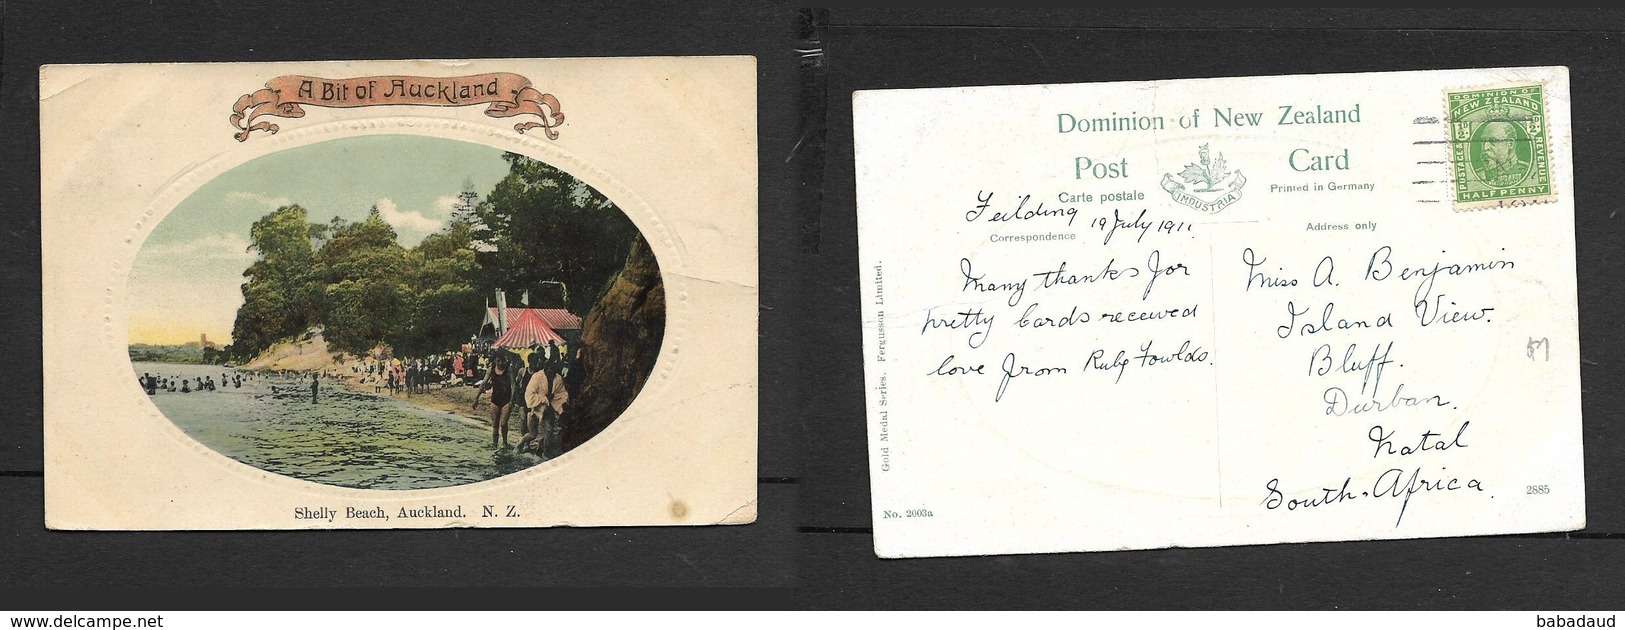 A Bit of Auckland
Shelly Beach, Auckland. N. Z.
Dominion of New Zealand
Post Card
Carte postale
INDUSTRIA
Printed in Germany
Correspondence
Address only
DOMINION OF
NEW ZEALAND
POSTAGE &
REVENUE
½ᴰ
½ᴰ
HALF PENNY
Feilding
19 July 1911.
Many thanks for
pretty Cards received
love from Ruby Fowlds.
Miss A. Benjamin
Island View.
Bluff.
Durban.
Natal
South Africa.
Gold Medal Series. Fergusson Limited.
No. 2003a
2885
delcampe.net
babadaud